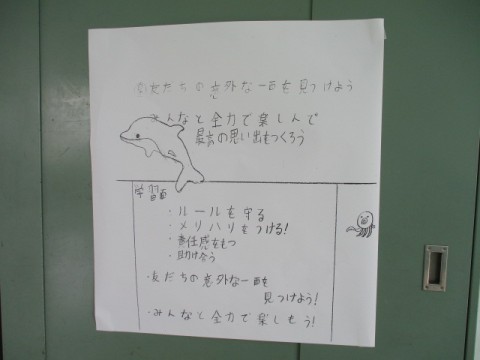 友だちの意外な一面を見つけよう
みんなと全力で楽しんで
最高の思い出をつくろう
学習面
・ルールを守る
・メリハリをつける!
・責任感をもつ
・助け合う
・友だちの意外な一面を
見つけよう!
・みんなと全力で楽しもう!